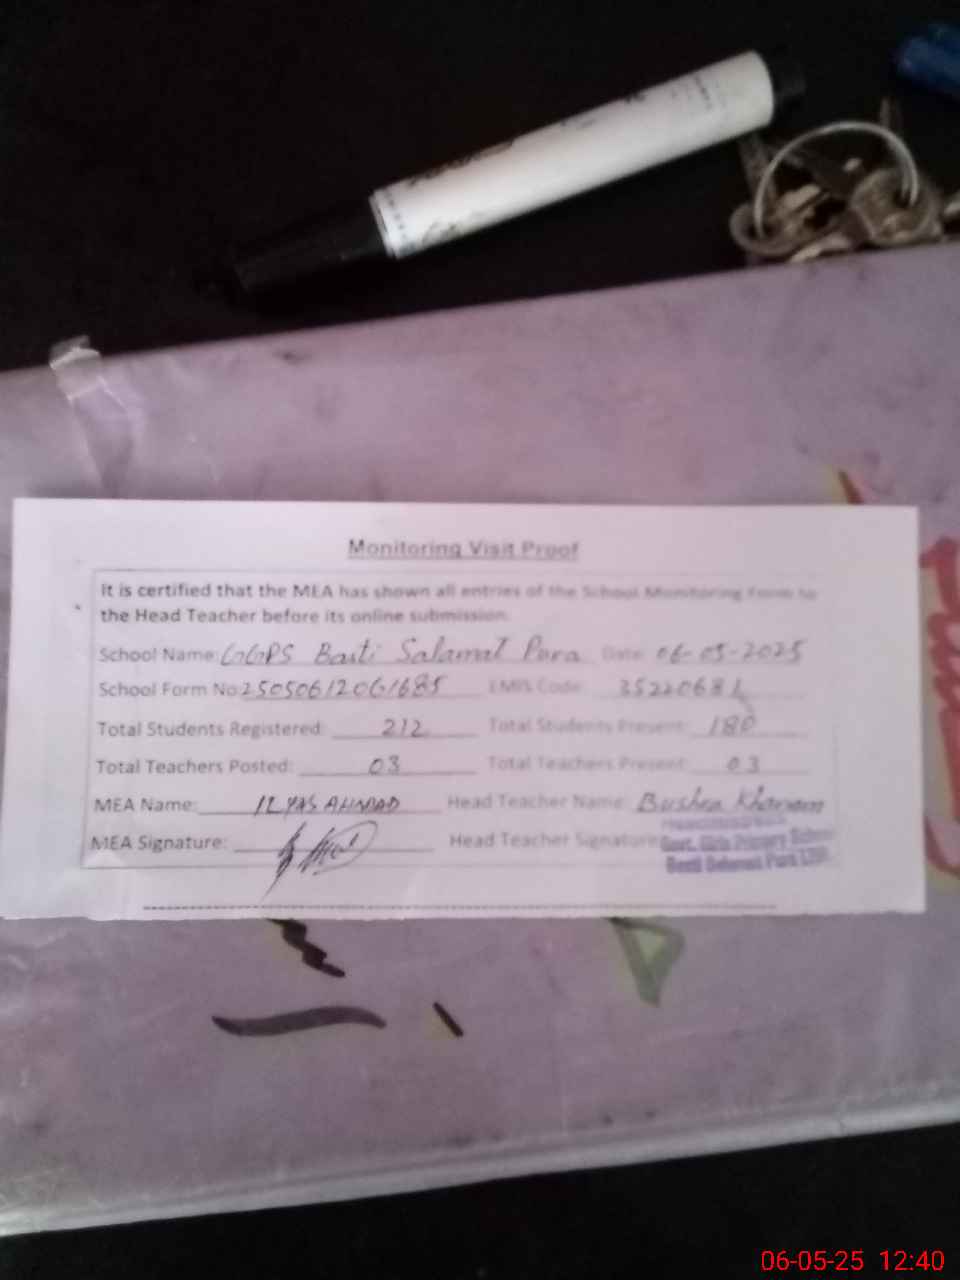 Monitoring Visit Proof
It is certified that the MEA has shown all entries of the School Monitoring Form to
the Head Teacher before its online submission.
School Name: GGPS Basti Salamat Pura Date: 06-05-2025
School Form No: 25050612061685 EMIS Code: 35220681
Total Students Registered: 212 Total Students Present: 180
Total Teachers Posted: 03 Total Teachers Present: 03
MEA Name: ILYAS AHMAD Head Teacher Name: Bushra Khanam
MEA Signature: Head Teacher Signature:
Govt. Girls Primary School
Basti Salamat Pura LHR.
06-05-25 12:40